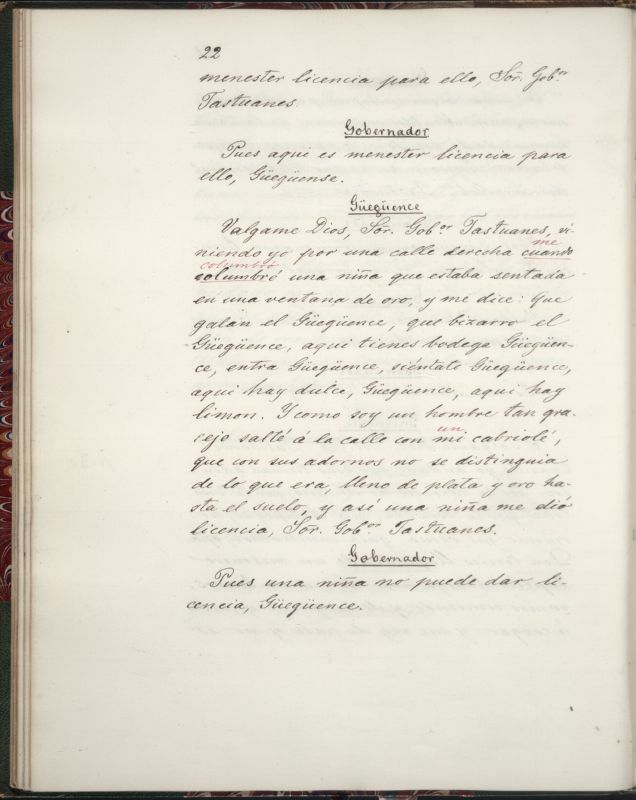 22
menester licencia para ello, Sor. Gob.or
Tastuanes.
Gobernador
Pues aqui es menester licencia para
ello, Güegüense.
Güegüence
Valgame Dios, Sor. Gob.or Tastuanes, vi-
me
niendo yo por una calle derecha cuando
columbró
columbré una niña que estaba sentada
en una ventana de oro, y me dice: Que
galan el Güegüence, que bizarro el
Güegüence, aqui tienes bodega Güegüen-
ce, entra Güegüence, siéntate Güegüence,
aqui hay dulce, Güegüence, aqui hay
limon. Y como soy un hombre tan gra-
un
cejo salté á la calle con mi cabriolé,
que con sus adornos no se distinguia
de lo que era, lleno de plata y oro ha-
sta el suelo, y así una niña me dió
licencia, Sor. Gob.or Tastuanes.
Gobernador
Pues una niña no puede dar li-
cencia, Güegüence.